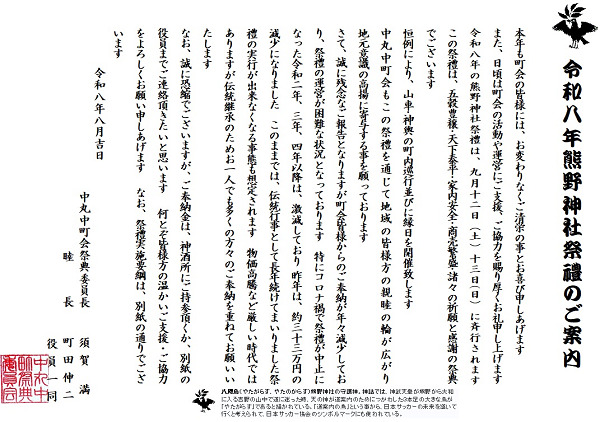 令和八年熊野神社祭禮のご案内
本年も町会の皆様には、お変わりなくご清栄の事とお喜び申しあげます
また、日頃は町会の活動や運営にご支援、ご協力を賜り厚くお礼申し上げます
令和八年の熊野神社祭禮は、九月十二日(土)十三日(日)に斉行されます
この祭禮は、五穀豊穣・天下泰平・家内安全・商売繁盛・諸々の祈願と感謝の祭典
でございます
恒例により、山車・神輿の町内巡行並びに縁日を開催致します
中丸中町会もこの祭禮を通じて地域の皆様方の親睦の輪が広がり
地元意識の高揚に寄与する事を願っております
さて、誠に残念なご報告となりますが町会皆様からのご奉納が年々減少してお
り、祭禮の運営が困難な状況となっております 特にコロナ禍で祭禮が中止に
なった令和二年、三年、四年以降は、激減しており昨年は、約三十三万円の
減少になりました このままでは、伝統行事として長年続けてまいりました祭
禮の実行が出来なくなる事態も想定されます 物価高騰など厳しい時代では
ありますが伝統継承のためお一人でも多くの方々のご奉納を重ねてお願いい
たします
なお、誠に恐縮でございますが、ご奉納金は、神酒所にご持参頂くか、別紙の
役員までご連絡頂きたいと思います 何とぞ皆様方の温かいご支援・ご協力
をよろしくお願い申しあげます なお、祭禮実施要綱は、別紙の通りでござ
います
令和八年八月吉日
中丸中町会祭典委員長 須賀 満
睦 長 町田伸二
役員一同
八咫烏(やたがらす、やたのからす)熊野神社の守護神。神話では、神武天皇が熊野から大和
に入る吉野の山中で道に迷った時、天の神が道案内のためにつかわした3本足の大きな烏が
「やたがらす」であると描かれている。「道案内の烏」という事から、日本サッカーの未来を導いて
行くと考えられて、日本サッカー協会のシンボルマークにも使われている。